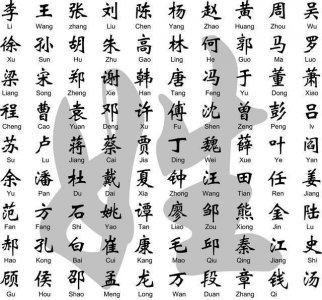 李 王 张 刘 陈 杨 赵 黄 周 吴
Li Wang zhang Liu Chen Yang Zhao Huang Zhou Wu
徐 孙 胡 朱 高 林 何 郭 马 罗
Xu Sun Hu Zhu Gao Lin He Guo Ma Luo
梁 宋 郑 谢 韩 唐 冯 于 董 萧
Liang Song Zheng Xie Han Tang Feng Yu Dong Xiao
程 曹 袁 邓 许 傅 沈 曾 彭 吕
Cheng Cao Yuan Deng Xu Fu Shen Zeng Peng lv
苏 卢 蒋 蔡 贾 丁 魏 薛 叶 阎
Su Lu Jiang Cai Jia Ding Wei Xue Ye Yan
余 潘 杜 戴 夏 钟 汪 田 任 姜
Yu Pan Du Dai Xia Zhong Wang Tian Ren Jiang
范 方 石 姚 谭 廖 邹 熊 金 陆
Fan Fang Shi Yao Tan Liao Zou Xiong Jin Lu
郝 孔 白 崔 康 毛 邱 秦 江 史
Hao Kong Bai Cui Kang Mao Qiu Qin Jiang Shi
顾 侯 邵 孟 龙 万 段 章 钱 汤
Gu Hou Shao Meng Long Wan Duan Zhang Qian Tang
姓